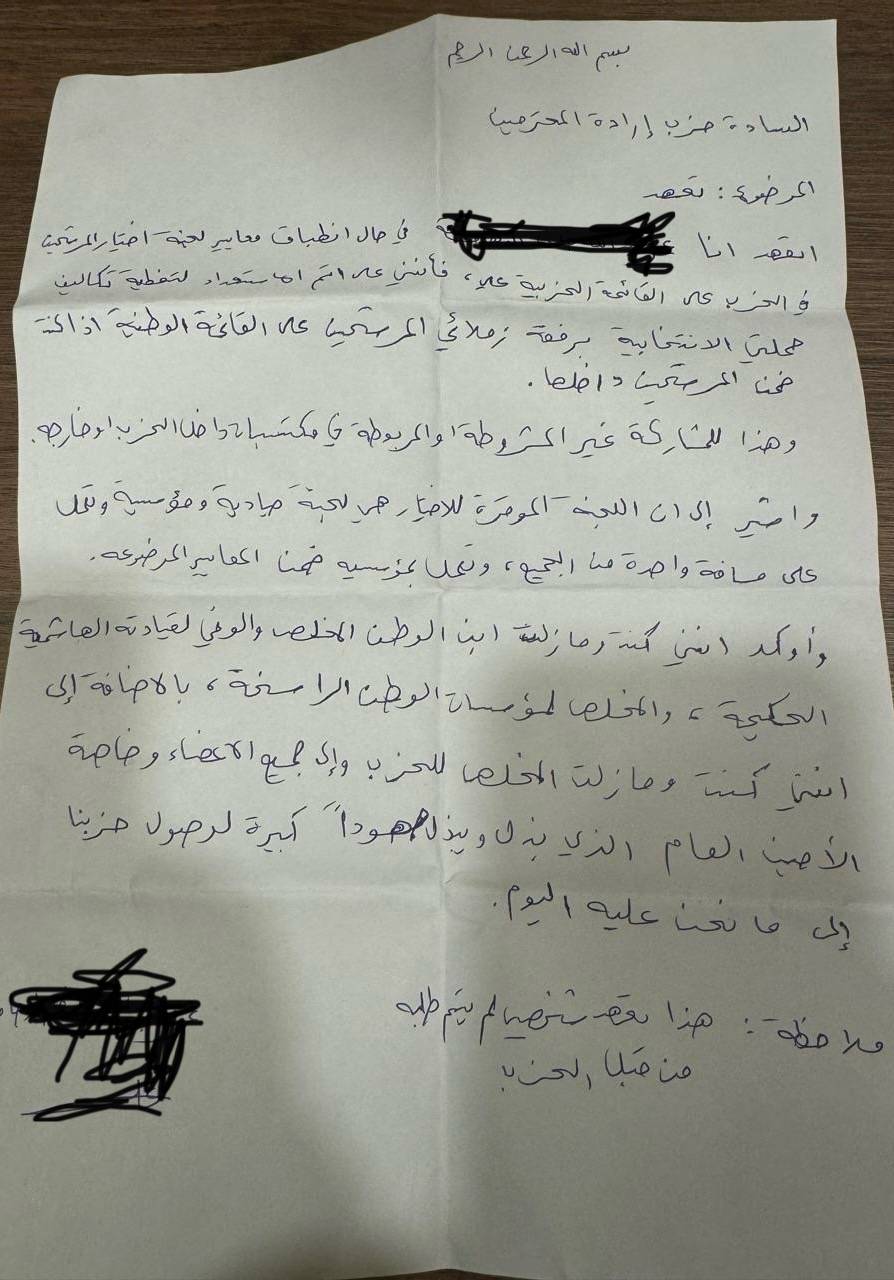 بسم الله الرحمن الرحيم
السادة حزب إرادة المحترمين
الموضوع: تعهد
اتعهد انا في حال انطباق معايير لجنة اختيار المرشحين
في الحزب على القائمة الحزبية علي، فأنني على اتم الاستعداد لتغطية تكاليف
حملتي الانتخابية برفقة زملائي المرشحين على القائمة الوطنية اذا كنت
ضمن المرشحين داخلها.
وهذا للمشاركة غير المشروطة او المربوطة في مكتسبات داخل الحزب او خارجه.
واشير إلى ان اللجنة الموقرة للاختيار هي لجنة حيادية ومؤسسية وتعمل
على مسافة واحدة من الجميع، وتعمل بمؤسسيه ضمن المعايير الموضوعه.
وأوكد انني كنت وما زلت ابن الوطن المخلص والوفي لقيادته الهاشمية
الحكيمة، والمخلص لمؤسسات الوطن الراسخة، بالاضافة إلى
انني كنت وما زلت المخلص للحزب وإلى جميع الاعضاء وخاصة
الأمين العام الذي بذل ويبذل جهوداً كبيرة لوصول حزبنا
إلى ما نحن عليه اليوم.
ملاحظة: هذا تعهد شخصي لم يتم طلبه
من قبل الحزب